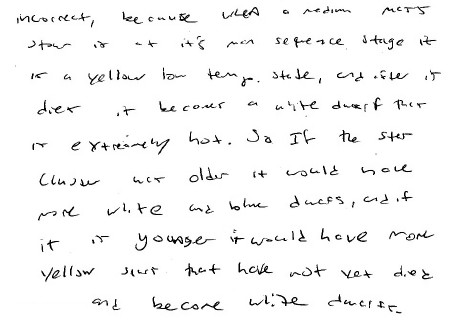 incorrect, because when a medium mass
star is at it's main sequence stage it
is a yellow low temp. state, and after it
dies it becomes a white dwarf that
is extremely hot. So If the star
Cluster was older it would have
more white and blue dwarfs, and if
it is younger it would have more
yellow stars that have not yet died
and become white dwarfs.